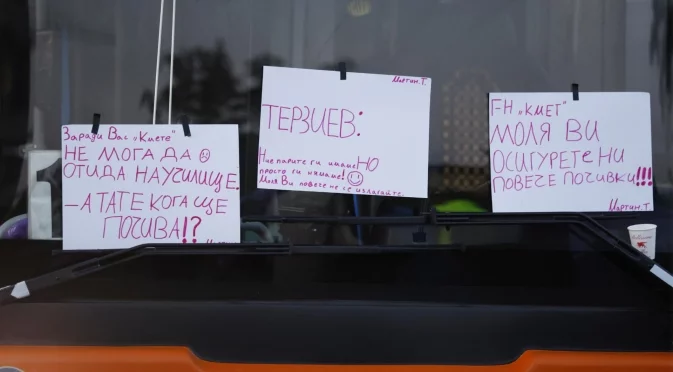 Заради Вас „Кмете"
НЕ МОГА ДА
ОТИДА НА УЧИЛИЩЕ.
– А ТАТЕ КОГА ЩЕ
ПОЧИВА!?
Мартин. Т.
ТЕРЗИЕВ:
Ние парите ги имаме НО
просто ги нямаме!
Моля Ви повече не се излагайте.
ГН „КМЕТ"
МОЛЯ ВИ
ОСИГУРЕТЕ НИ
ПОВЕЧЕ ПОЧИВКИ!!!
Мартин. Т